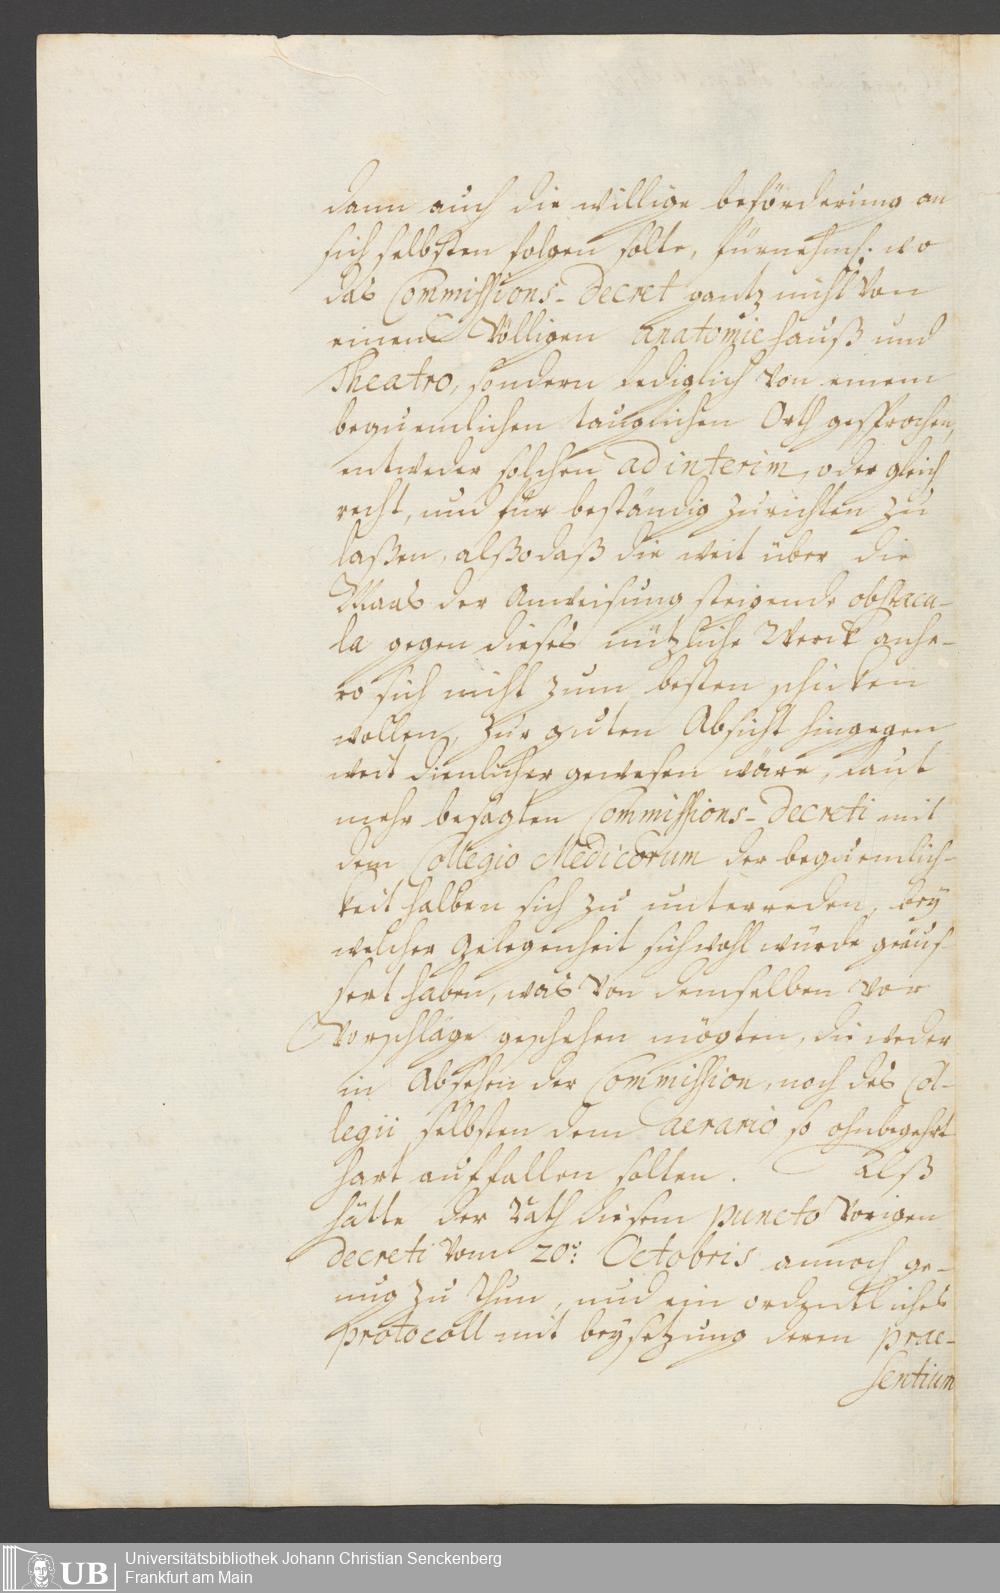 dann auch die willige beförderung an
sich selbsten folgen solte, fürnehml. wo
das Commissions-Decret gantz nicht von
einem völligen Anatomie hauß und
Theatro, sondern lediglich von einem
bequemlichen tauglichen Orth gesprochen,
entweder solchen ad interim, oder gleich
recht, und für beständig zurichten zu
laßen, alßo daß die weit über die
Maas der Anweisung steigende obstacu-
la gegen dieses nützliche Werck anhe-
ro sich nicht zum besten schicken
wollen, zur guten Absicht hingegen
weit dienlicher gewesen wäre, laut
mehr besagten Commissions-Decreti mit
dem Collegio Medicorum der bequemlich-
keit halben sich zu unterreden, bey
welcher Gelegenheit sich wohl würde geäus
sert haben, was von demselben vor
Vorschläge geschehen mögten, die weder
in Absehen der Commission, noch des Col-
legii selbsten dem aerario so ohnbegehrt
hart auffallen solten. Alß
hätte der Rath diesem puncto vorigen
decreti vom 20. Octobris annoch ge-
nug zu thun, und ein ordentliches
protocoll mit beysetzung deren prae-
sentium
Universitätsbibliothek Johann Christian Senckenberg
Frankfurt am Main
UB